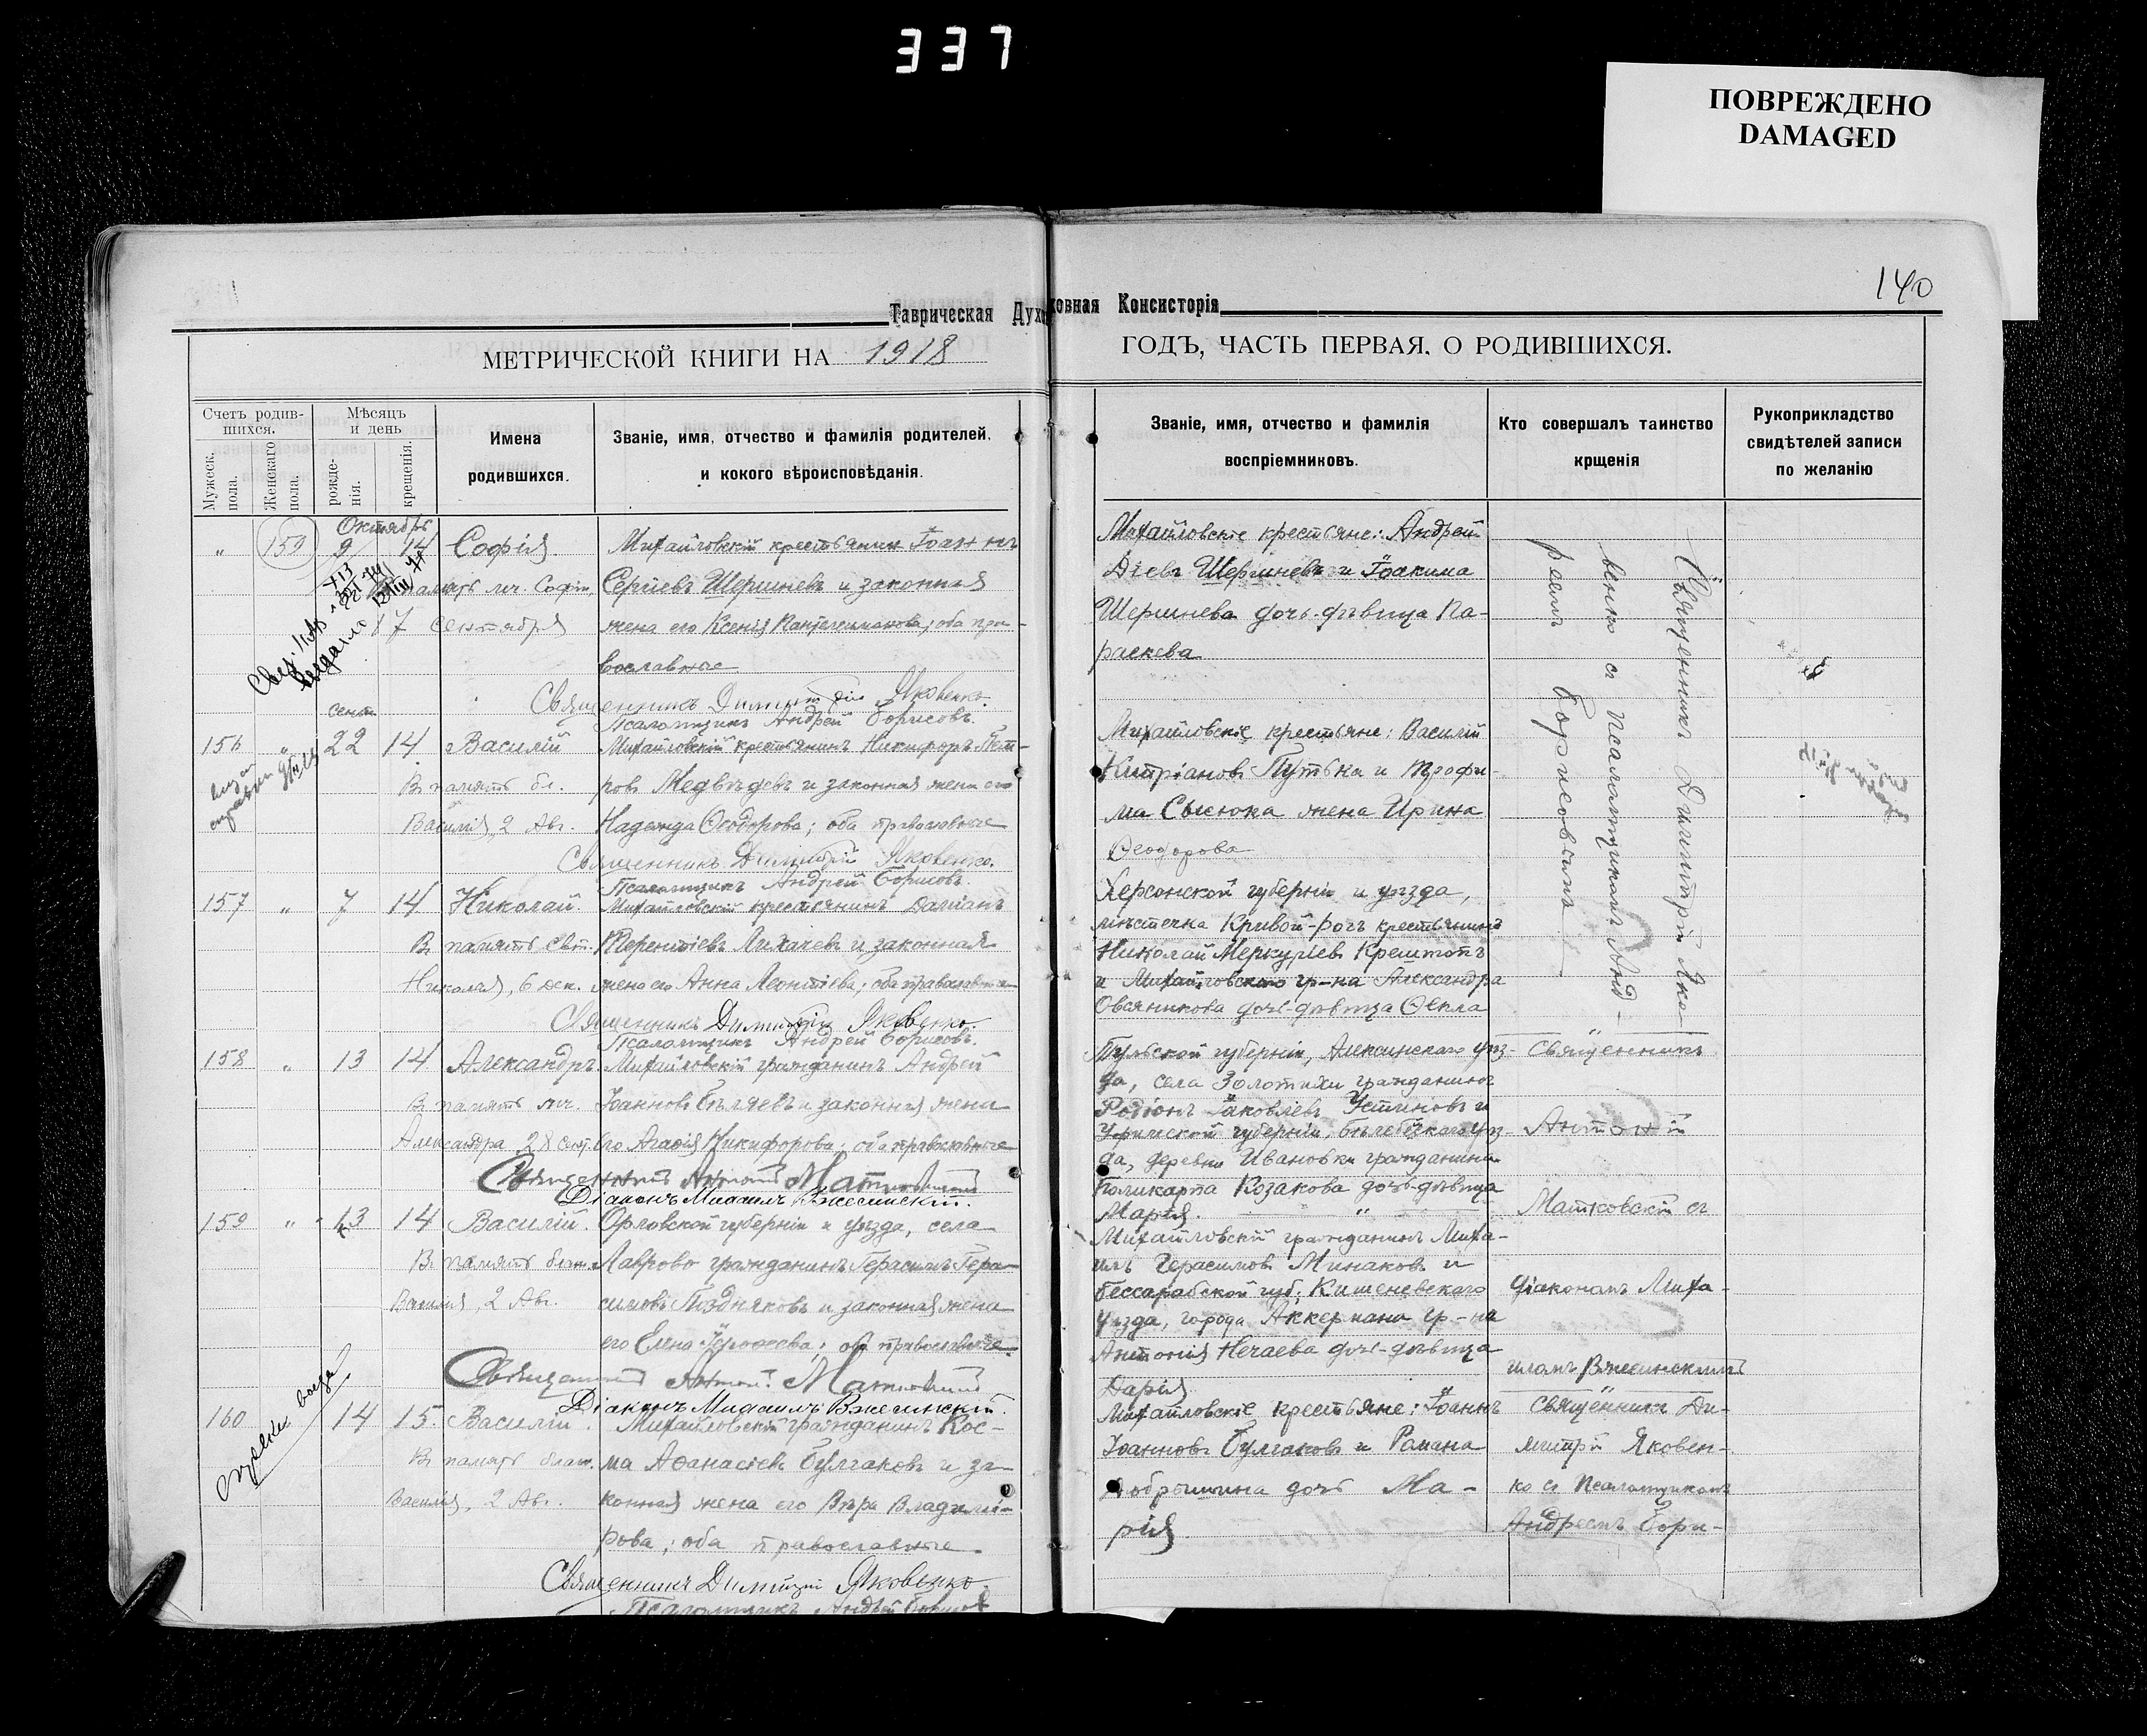 337
ПОВРЕЖДЕНО
DAMAGED
140
Таврическая Духовная Консисторія
МЕТРИЧЕСКОЙ КНИГИ НА 1918 ГОДЪ, ЧАСТЬ ПЕРВАЯ, О РОДИВШИХСЯ.
Счетъ родив-
шихся.
Мужеск. пола.
Женскаго пола.
Мѣсяцъ
и день
рожде-
нія.
крещенія.
Имена
родившихся.
Званіе, имя, отчество и фамилія родителей,
и кокого вѣроисповѣданія.
Званіе, имя, отчество и фамилія
воспріемниковъ.
Кто совершалъ таинство
крщенія
Рукоприкладство
свидѣтелей записи
по желанію
Октябрь
„ 159 9 14 Софія
Михайловскій крестьянинъ Іоаннъ
память мч. Софіи, Сергіевъ Шершневъ и законная
17 сентября жена его Ксенія Пантелеимонова; оба пра-
вославные
Священникъ Димитрій Яковенко.
Псаломщикъ Андрей Борисовъ.
Михайловскіе крестьяне: Андрей
Діевъ Шершневъ и Іоакима
Шершнева дочь-дѣвица Па-
раскева
Священникъ Димитрій Яко-
венко съ псаломщикомъ Анд-
реемъ Борисовымъ
сент.
156 „ 22 14 Василій Михайловскій крестьянинъ Никифоръ Пет-
Въ память бл. ровъ Медвѣдевъ и законная жена его
Василія, 2 Авг. Надежда Ѳеодорова; оба православные
Священникъ Димитрій Яковенко.
Псаломщикъ Андрей Борисовъ.
Михайловскіе крестьяне: Василій
Кипріановъ Путька и Трофи-
ма Сысюка жена Ирина
Ѳеодорова
157 „ 7 14 Николай. Михайловскій крестьянинъ Даміанъ
Въ память Свт. Терентіевъ Лихачевъ и законная
Николая, 6 дек. жена его Анна Леонтіева; оба православные
Священникъ Димитрій Яковенко.
Псаломщикъ Андрей Борисовъ.
Херсонской губерніи и уѣзда,
мѣстечка Кривой-рогъ крестьянинъ
Николай Меркуріевъ
и Михайловскаго гр-на Александра
Овсяникова дочь-дѣвица Ѳекла
158 „ 13 14 Александръ. Михайловскій гражданинъ Андрей
Въ память мч. Іоанновъ Бѣляевъ и законная жена
Александра, 28 Сент. его Агаѳія Никифорова; оба православные
Священникъ Антоній Матковскій
Діаконъ Михаилъ Вжесинскій.
Тульской губерніи, Алексинскаго уѣз-
да, села Золотихи гражданинъ
Родіонъ Іаковлевъ Устиновъ и
Уфимской губерніи, Белебейскаго уѣз-
да, деревни Ивановки гражданина
Поликарпа Козакова дочь-дѣвица
Марія.
Священникъ
Антоній
Матковскій съ
діакономъ Миха-
иломъ Вжесинскимъ
159 „ 13 14 Василій. Орловской губерніи и уѣзда, села
Въ память блаж. Лаврово гражданинъ Герасимъ Гера-
Василія, 2 Авг. симовъ Поздняковъ и законная жена
его Елена; оба православные.
Священникъ Антоній Матковскій
Діаконъ Михаилъ Вжесинскій.
Михайловскій гражданинъ Миха-
илъ Герасимовъ Минаковъ и
Бессарабской губ. Кишеневскаго
уѣзда, города Аккермана гр-на
Антонія Нечаева дочь-дѣвица
Дарія
160 14 15. Василій. Михайловскій гражданинъ Кос-
Въ память блаж. ма Аѳанасіевъ Булгаковъ и за-
Василія, 2 Авг. конная жена его Вѣра Владимі-
рова; оба православные
Священникъ Димитрій Яковенко.
Псаломщикъ Андрей Борисовъ
Михайловскіе крестьяне: Іоаннъ
Іоанновъ Булгаковъ и Романа
Добрышина дочь Ма-
рія
Священникъ Ди-
митрій Яковен-
ко съ псаломщикомъ
Андреемъ Бори-